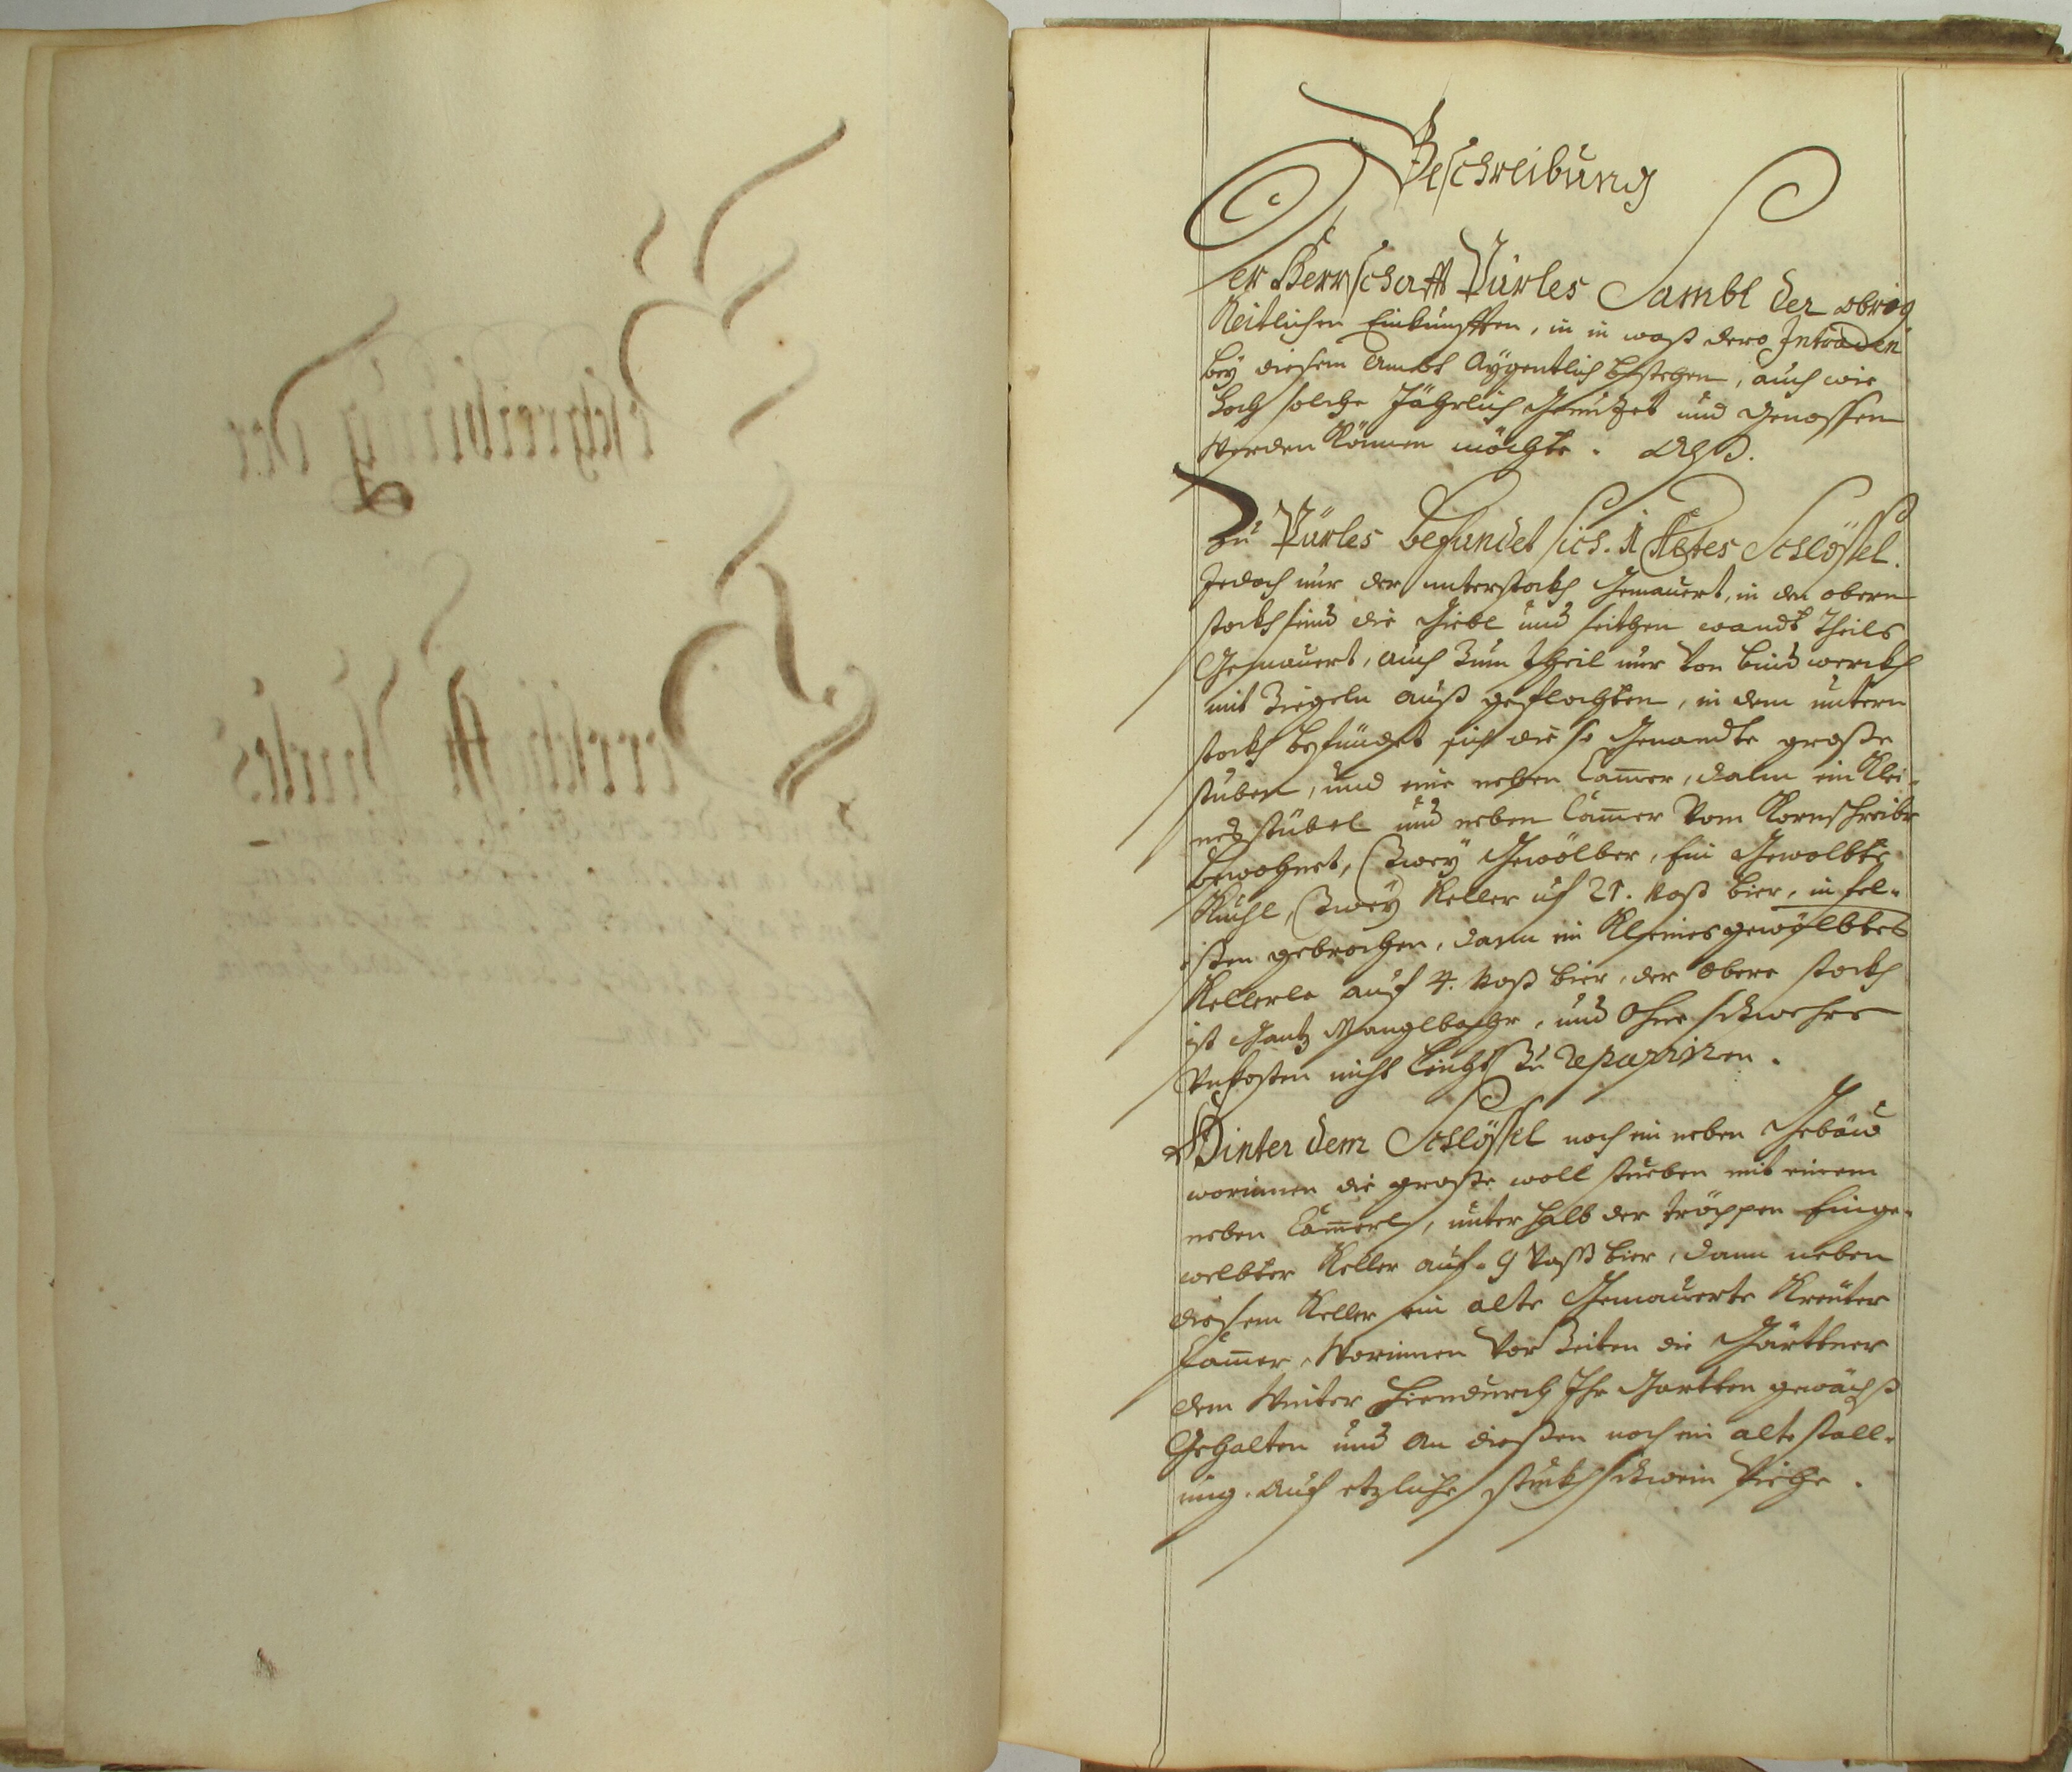 Beschreibung
Der Herrschafft Pürles Sambt der obrig
Keitlichen Einkünfften, in in waß dero Intraden
bey diesem Ambt Aygentlich bestehen, auch wie
hoch solche Jährlich Genutzet und Genossen
werden können möchte. Alß.
Zu Pürles befindet sich. 1 Altes Schlössel.
Jedoch nur der unterstockh Gemauert, in den obern
stockh seind die Giebl und seithen wandt theils
Gemauert, auch Zum theil nur von bindwerckh
mit Ziegeln auß geflochten, in dem untern
stockh befindet sich die so Genandte große
stuben, und eine neben Cammer, dann ein Klei-
nes stübel und neben Cammer vom Kornschreiber
bewohnet, Zwey Gewölber, Ein Gewölbte
Kuchl, Zwey Keller uf 21. Vaß bier, in fel-
ßen gebrochen, dann ein Kleines gewölbtes
Kellerle auf 4. Vaß bier, der obere stockh
ist Gantz Manglbahr, und Ohne schwehre
Unkosten nicht leicht Zu repariren.
Hinter dem Schlössel noch ein neben Gebäu
worinnen die große woll stueben mit einem
neben Cammerl, unter halb der tröppen Einge-
welbter Keller auf. 9 Vaß bier, dann neben
diesem Keller ein alte Gemauerte Kreüter
Cammer, Worinnen Vor Zeiten die Gärttner
dem Winter hiendurch Ihr Gartten gewächß
Gehalten und an dießen noch ein alte stall-
ung. auf etzliche stuckh schwein Viehe.